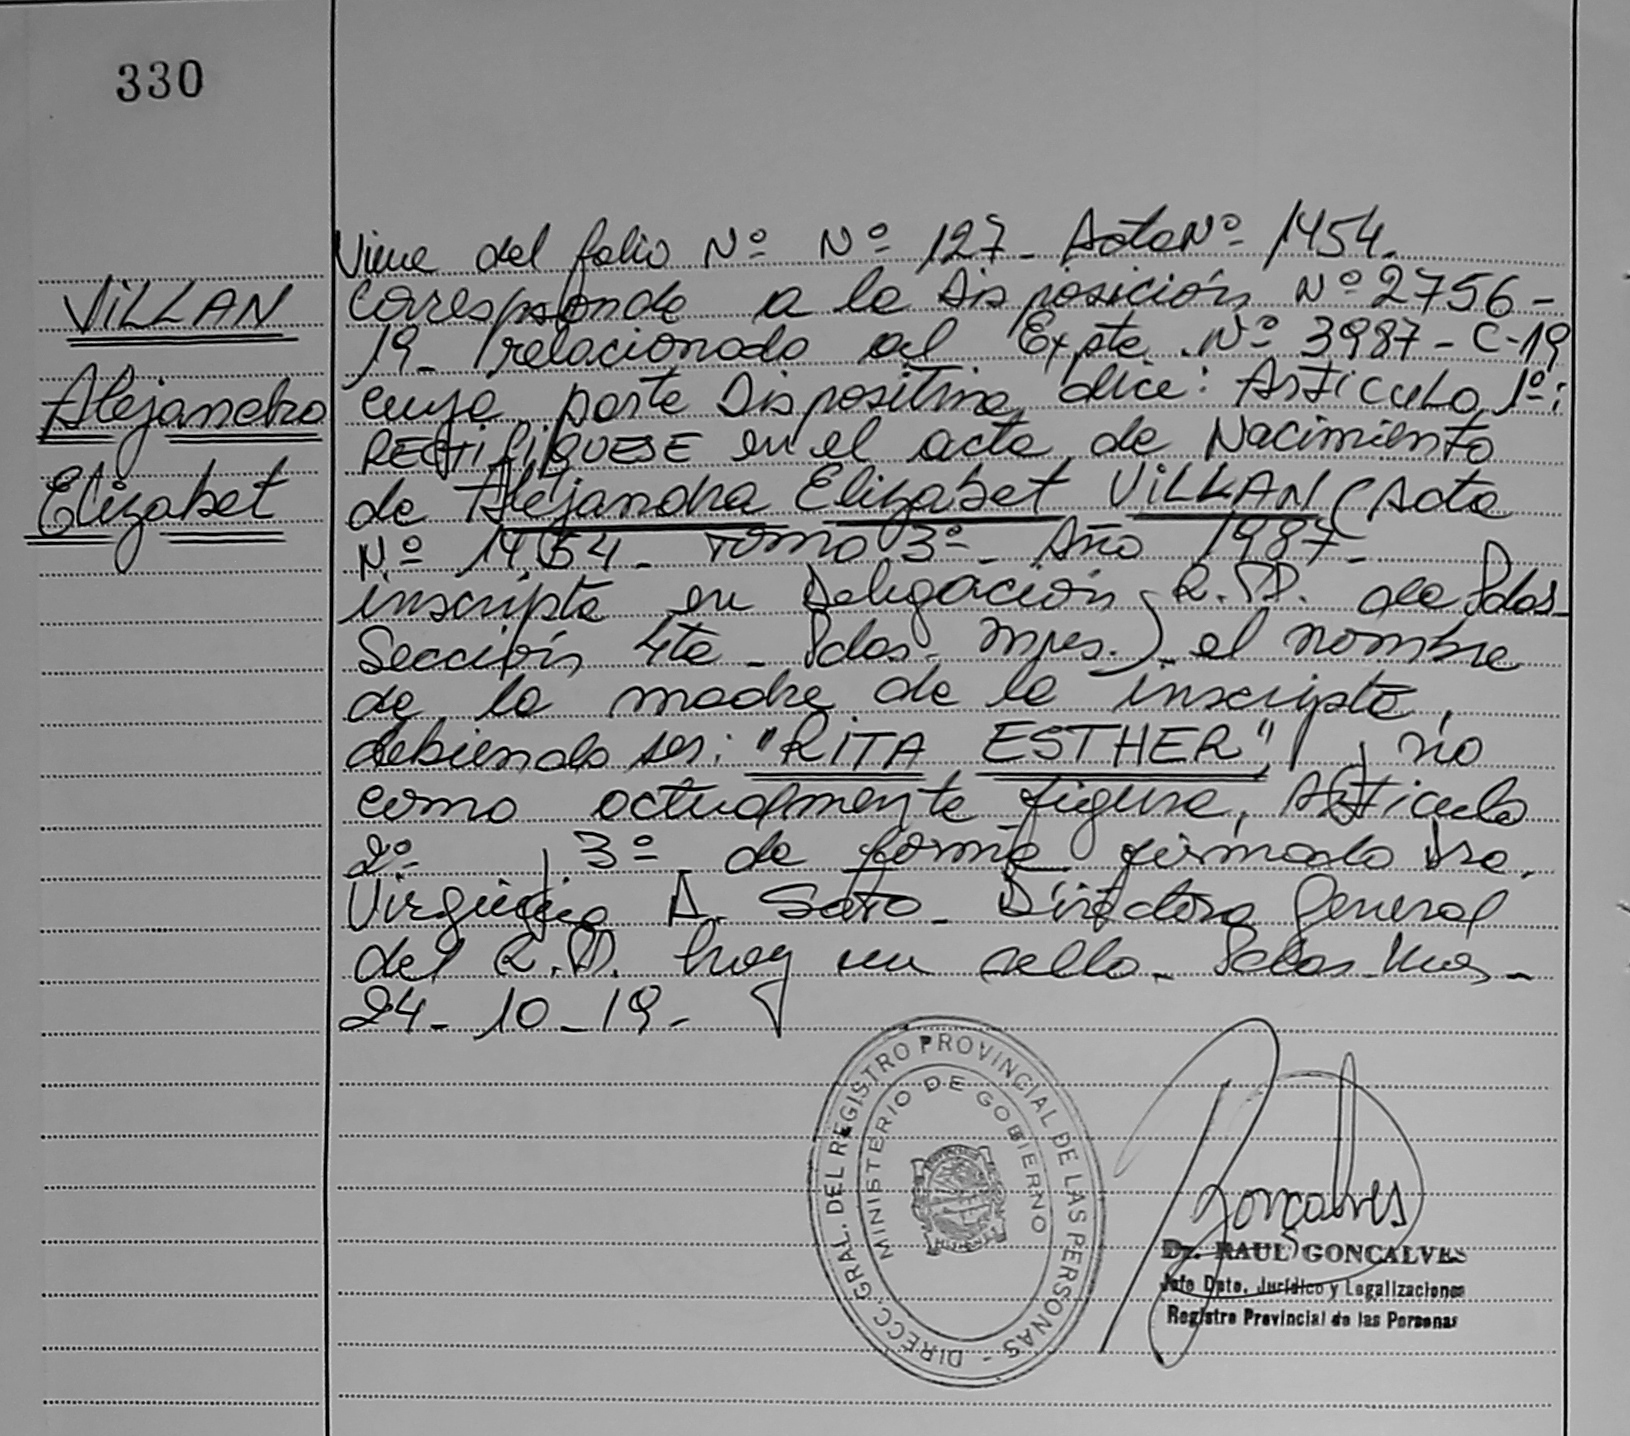 330
VILLAN
Alejandra
Elizabet
Viene del folio Nº Nº 127- Acta Nº 1454.
Corresponde a la Disposición Nº 2756-
19- relacionado al Expte. Nº 3987-C-19
cuya parte Dispositiva dice: Artículo 1º:
RECTIFIQUESE en el acta de Nacimiento
de Alejandra Elizabet VILLAN (Acta
Nº 1454- Tomo 3º- Año 1987-
inscripta en Delegación R.P. de Pdas-
Sección 4ta- Pdas- Mnes.) el nombre
de la madre de la inscripta,
debiendo ser: "RITA ESTHER", y no
como actualmente figura, Artículo
2º y 3º de forma firmado Dra.
Virginia A. Soto- Directora General
del R.P. hay un sello- Pdas- Mnes-
24-10-19-
DIRECC. GRAL. DEL REGISTRO PROVINCIAL DE LAS PERSONAS -
MINISTERIO DE GOBIERNO
Gonçalves
Dr. RAUL GONCALVES
Jefe Dpto. Jurídico y Legalizaciones
Registro Provincial de las Personas